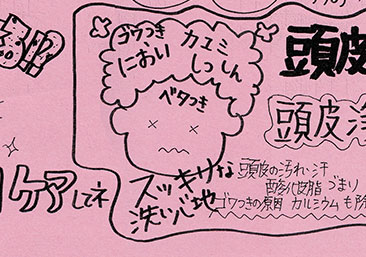 ゴワつき カユミ
におい しっしん
ベタつき
頭皮
頭皮浄
ケアしてネ
スッキリな
洗い心地
頭皮の汚れ・汗
酸化皮脂 づまり
ゴワつきの原因 カルシウムも除